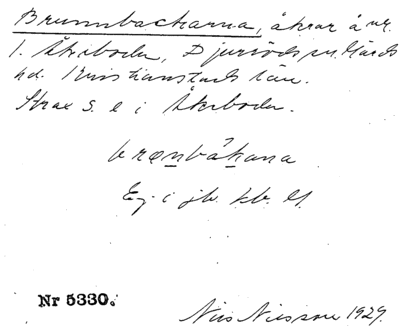 Brunnbackarna, åkrar å nr.
1. Åkeboda, Djurröds sn. Gärds
hd. Kristianstads län.
Strax s. e i Åkeboda.
brœnbákana
Ej i jb. kb. El.
Nr 5330.
Nils Nilsson 1929.